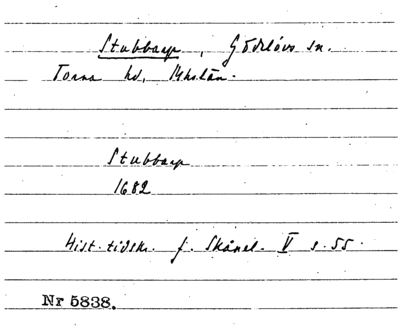 Stubbarp, Gödelövs sn.
Torna hd, Mhs län.
Stubbarp
1682
Hist. tidskr. f. Skånel. V s. 55.
Nr 5838.